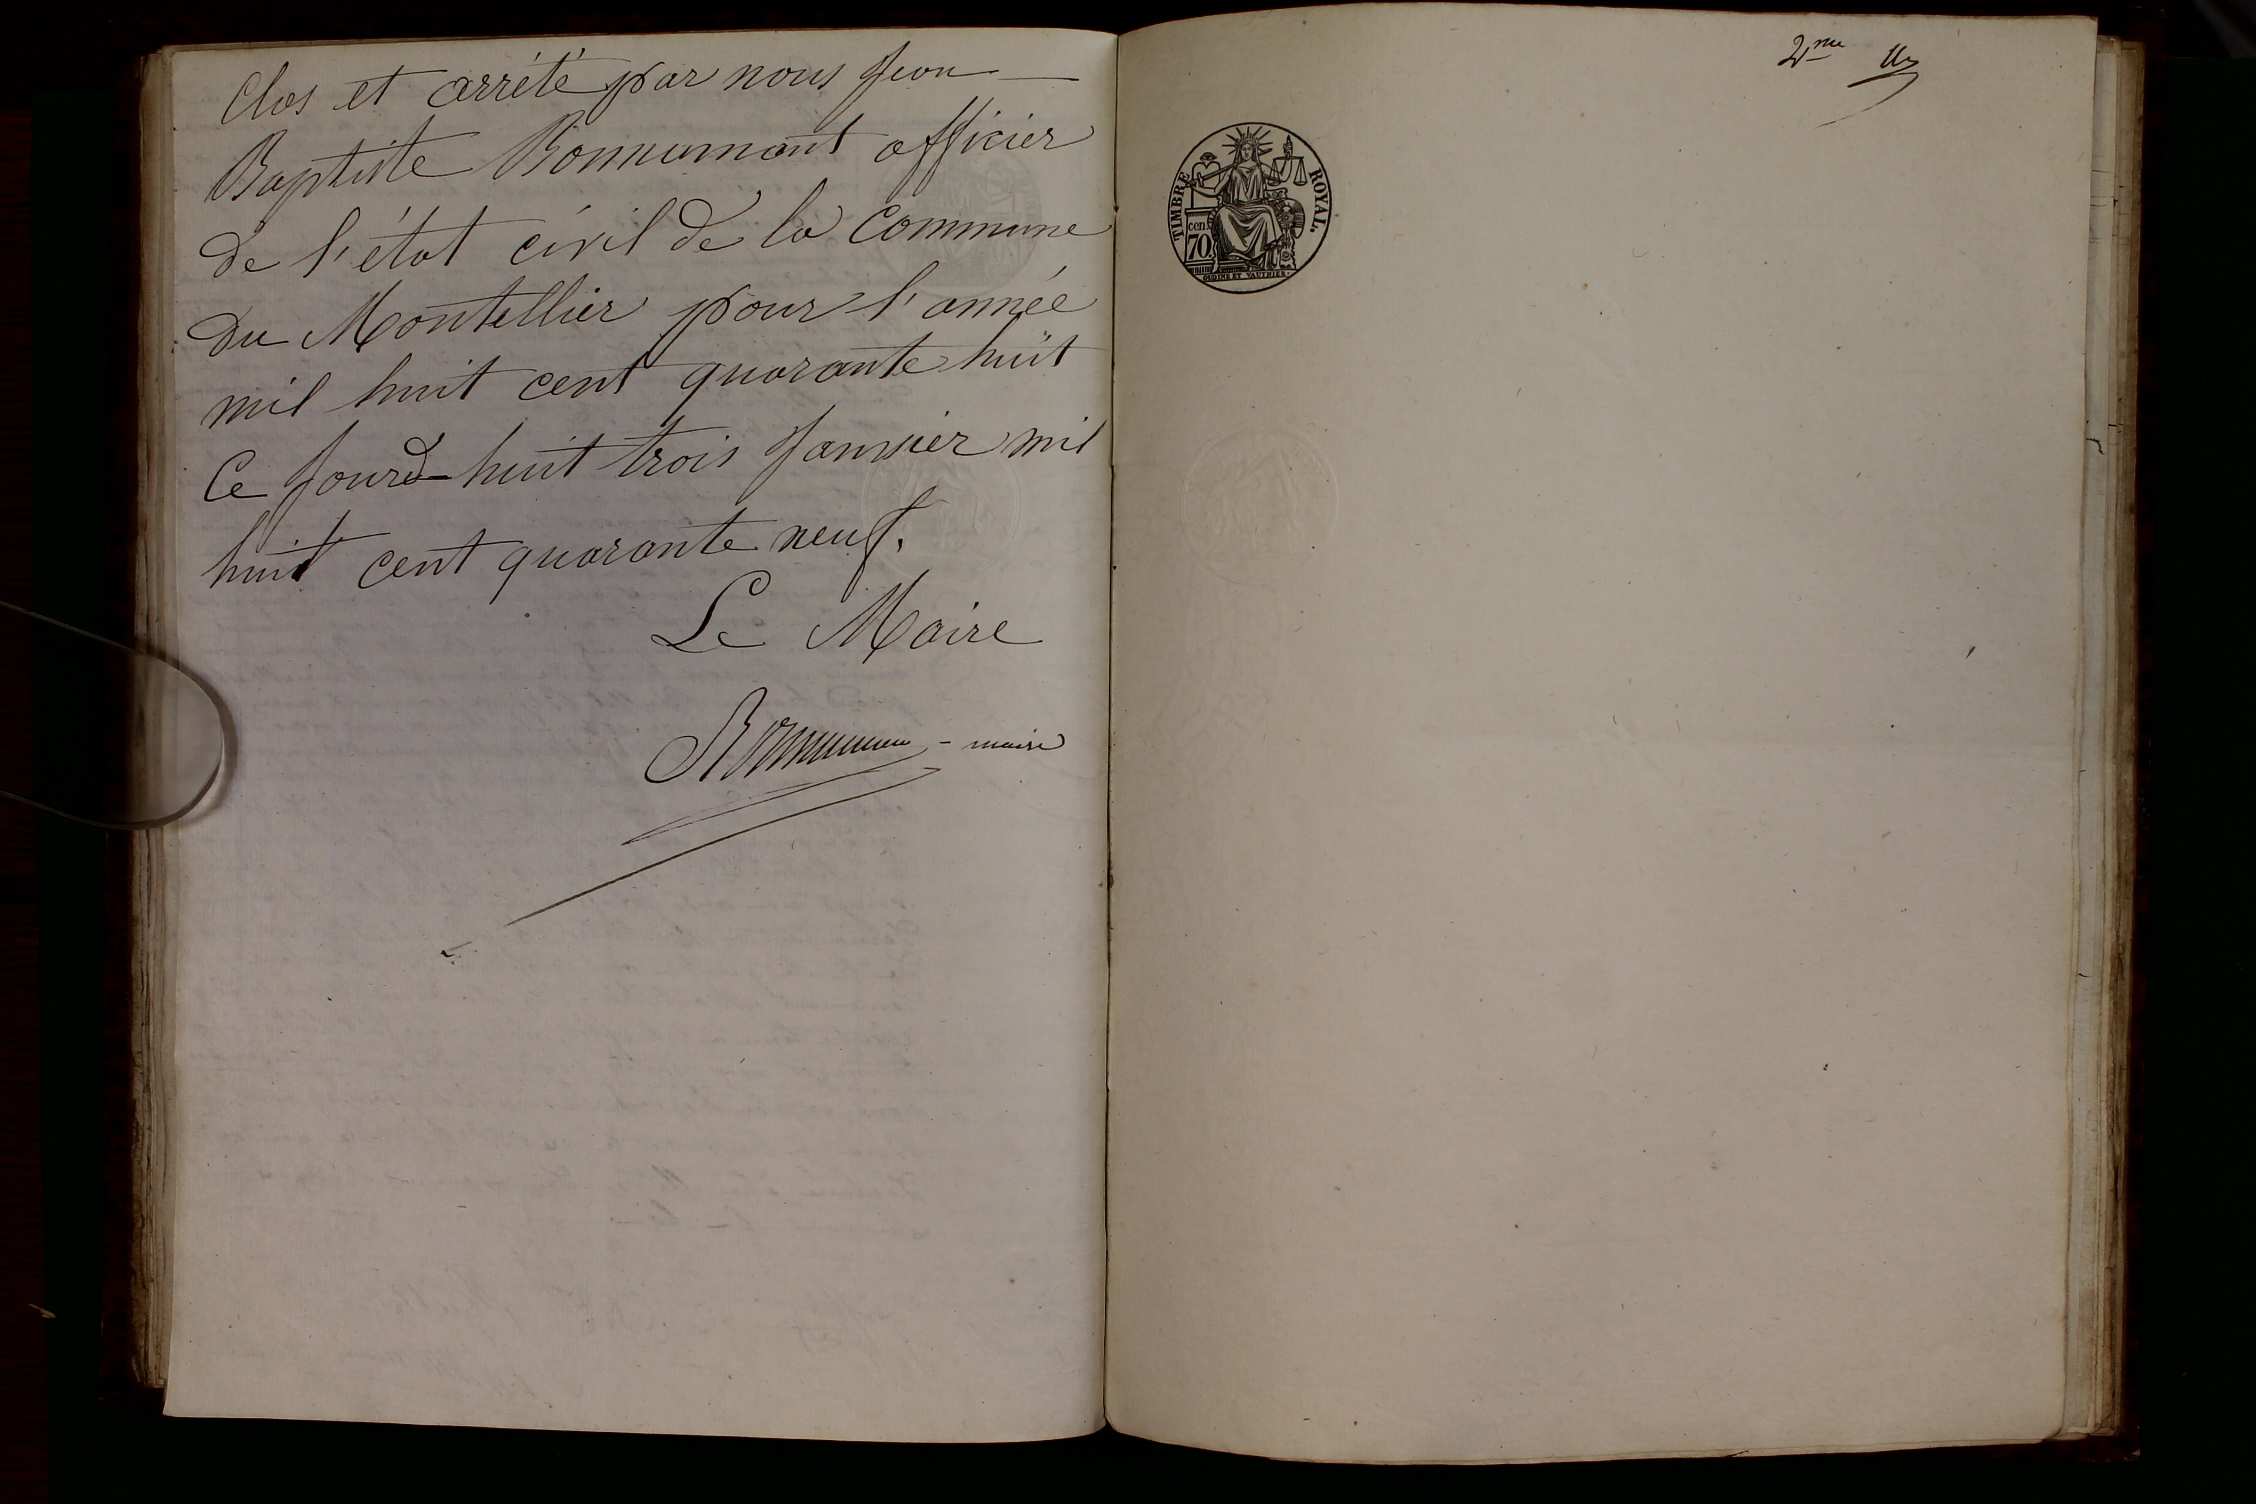 Clos et arrêté par nous Jean
Baptiste Bonnumant officier
de l'état civil de la Commune
du Montellier pour l'année
mil huit cent quarante huit
Ce Jourd-huit trois Janvier mil
huit cent quarante neuf.
Le Maire
- maire
2me
TIMBRE ROYAL.
cen.
70